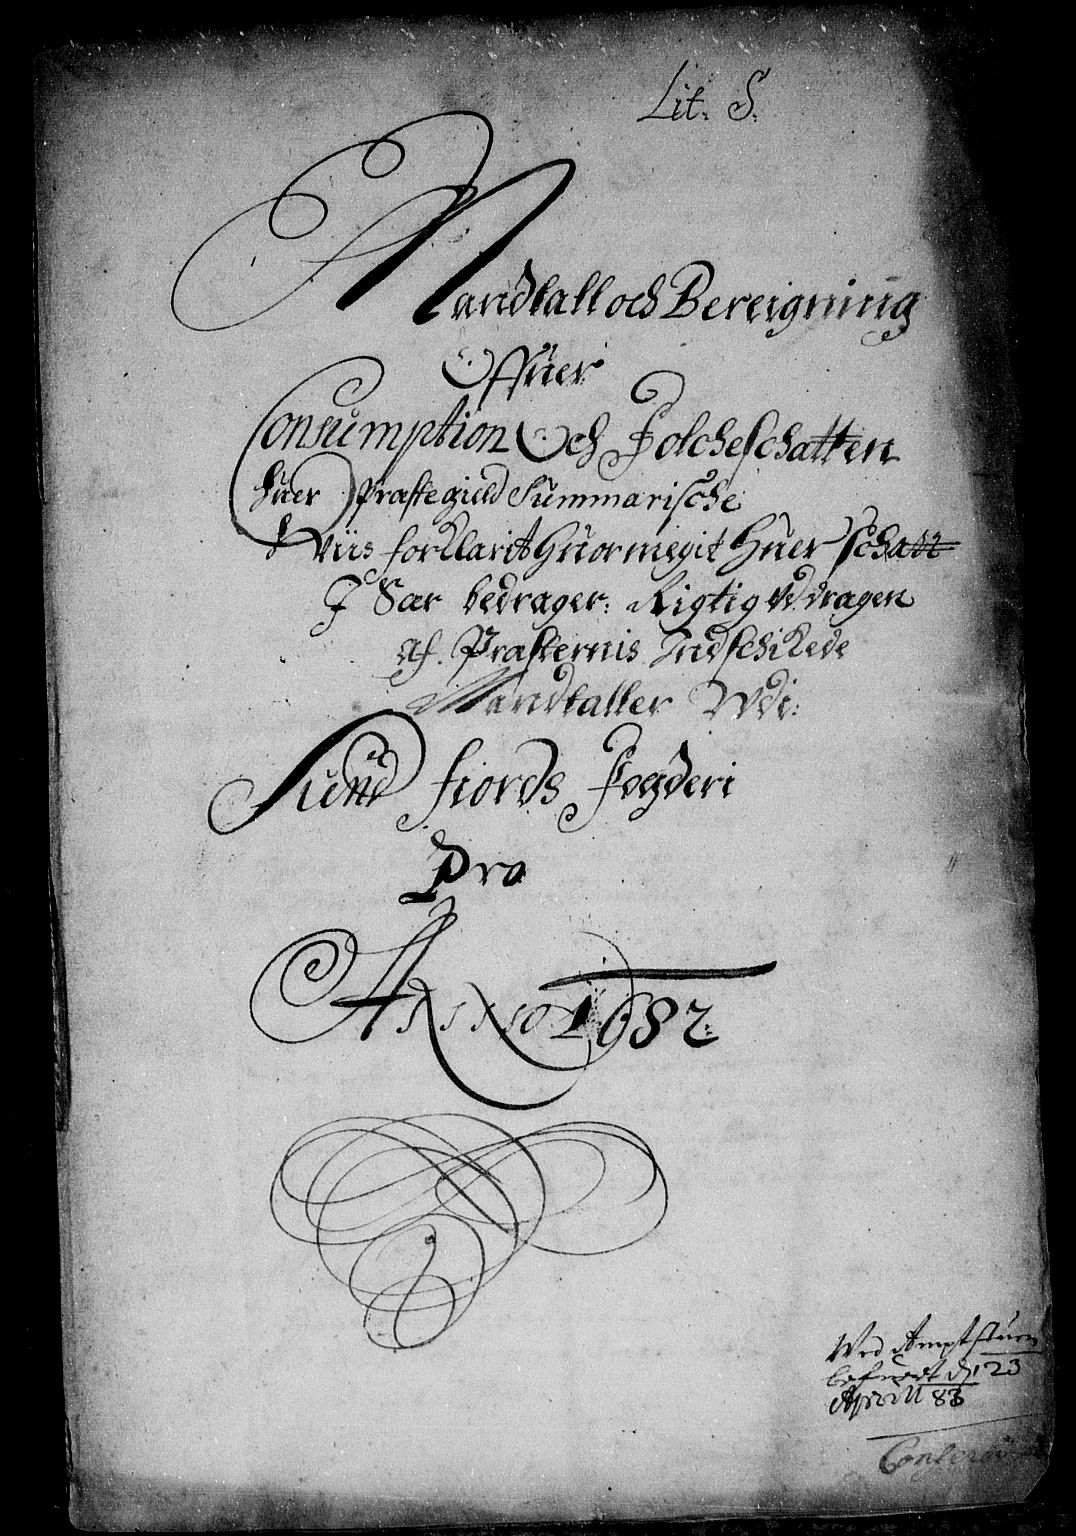 Lit: S:
Mandtall och Bereigning
Offuer
Consumption Och Folcheschatten
huer Præstegield Summarische
Wiis forKlarit Huor megit Huer Schatt
J Sær bedrager: Rigtig Vddragen
af. Præsternis IndschiKede
Mandtaller Wdi:
Sund fiords Fogderi
Pro
Anno 1682:
Wed Ampt stuen
d 23
Aprill 83